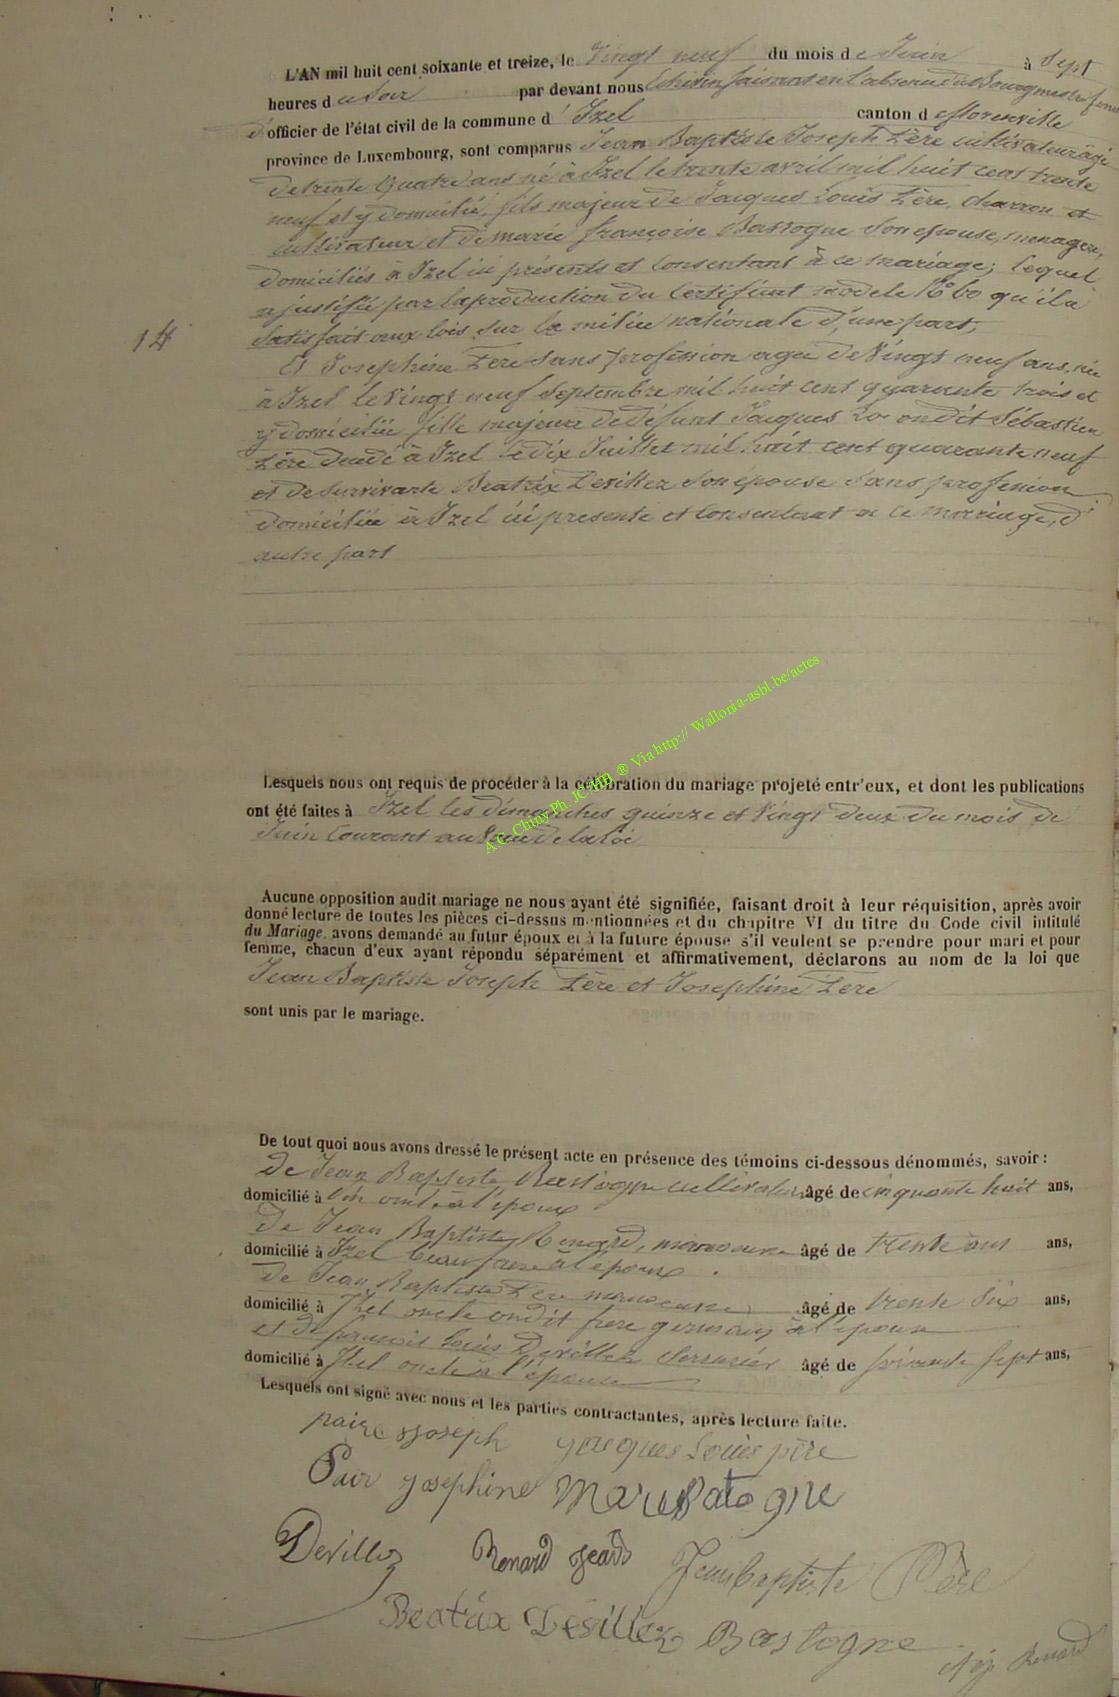 L'AN mil huit cent soixante et treize, le Vingt neuf du mois de Juin à Sept
heures du Soir par devant nous Echevin faisant en l'absence du Bourgmestre
d'officier de l'état civil de la commune d'Izel canton de florenville
province de Luxembourg, sont comparus Jean Baptiste Joseph Père cultivateur âgé
de trente quatre ans né à Izel le trente avril mil huit cent trente
neuf et y domicilié, fils majeur de Jacques Louis Père, charron et
cultivateur et de marie françoise Bastogne son epouse, menagère,
domiciliés à Izel ici présents et consentant à ce mariage; lequel
a justifié par la production du Certificat modele No 60 qu'il a
satisfait aux lois sur la milice nationale d'une part,
Et Josephine Père sans profession agée de Vingt neuf ans, née
14
à Izel le Vingt neuf Septembre mil huit cent quarante trois et
y domiciliée fille majeure de defunt Jacques Lo ondit Sébastien
Père décédé à Izel le dix Juillet mil huit cent quarante neuf
et de survivante Beatrix Devillez son épouse sans profession
domiciliée à Izel ici presente et consentant a ce mariage, d'
autre part
Lesquels nous ont requis de procéder à la célébration du mariage projeté entr'eux, et dont les publications
ont été faites à Izel les dimanches quinze et Vingt deux du mois de
Juin Courant au Vœu de la loi
A.G. Chiny Ph. JC MB ® Via http:// Wallonia-asbl.be/actes
Aucune opposition audit mariage ne nous ayant été signifiée, faisant droit à leur réquisition, après avoir
donné lecture de toutes les pièces ci-dessus mentionnées et du chapitre VI du titre du Code civil intitulé
du Mariage, avons demandé au futur époux et à la future épouse s'il veulent se prendre pour mari et pour
femme, chacun d'eux ayant répondu séparément et affirmativement, déclarons au nom de la loi que
Jean Baptiste Joseph Père et Josephine Père
sont unis par le mariage.
De tout quoi nous avons dressé le présent acte en présence des témoins ci-dessous dénommés, savoir:
de Jean Baptiste Bastogne cultivateur âgé de cinquante huit ans,
domicilié à Pin oncle à l'époux
De Jean Baptiste Renard, manoeuvre âgé de trente ans ans,
domicilié à Izel beau frere à l'époux.
de Jean Baptiste Père manoeuvre âgé de trente Six ans,
domicilié à Izel oncle ondit frere germain à l'épouse
et de francois Louis Devillez serrurier âgé de soixante sept ans,
domicilié à Izel oncle à l'épouse
Lesquels ont signé avec nous et les parties contractantes, après lecture faite.
paire Joseph jacques Louis père
Pair josephine Marie Batogne
Devillez Renard Jean Jean baptiste Père
Beatrix Devillez Bastogne
Renard